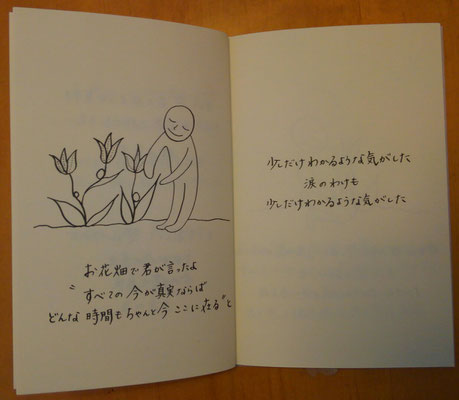 お花畑で君が言ったよ
"すべての今が真実ならば
どんな時間もちゃんと今ここに在る"と
少しだけわかるような気がした
涙のわけも
少しだけわかるような気がした